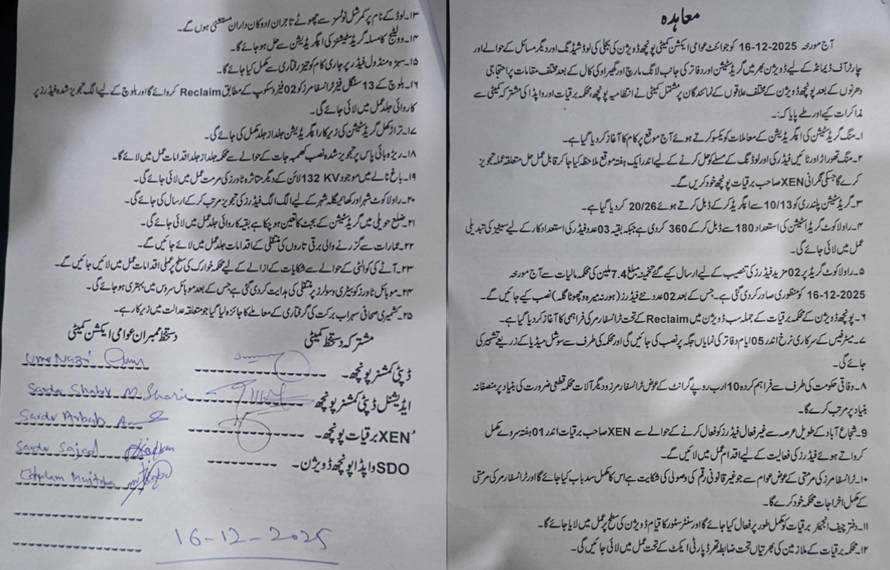 معاہدہ
آج مورخہ 2025-12-16 کو جوائنٹ عوامی ایکشن کمیٹی پونچھ ڈویژن کی بجلی کی لوڈ شیڈنگ اور دیگر مسائل کے حوالے اور
چارٹر آف ڈیمانڈ کے لیے ڈویژن بھر میں گریڈ سٹیشن اور دفاتر کی جانب لانگ مارچ اور گھیراؤ کی کال کے بعد مختلف مقامات پر احتجاجی
دھرنوں کے بعد پونچھ ڈویژن کے مختلف علاقوں کے نمائندگان پر مشتمل کمیٹی نے انتظامیہ پونچھ محکمہ برقیات اور واپڈا کی مشترکہ کمیٹی سے
مذاکرات کیے اور طے پایا کہ:۔
۱۔ منگ گریڈ سٹیشن کی اپگریڈیشن کے معاملات کو یکسو کرتے ہوئے آج موقع پر کام کا آغاز کر دیا گیا ہے۔
۲۔ منگ تھوراڑ اور ٹائیں فیڈر کی اوور لوڈنگ کے مسئلے کو حل کرنے کے لیے اندر ایک ہفتہ موقع ملاحظہ کیا جا کر قابل عمل حل متعلقہ عملہ تجویز
کرے گا جسکی نگرانی XEN صاحب برقیات پونچھ خود کریں گے۔
۳۔ گریڈ سٹیشن پلندری کو 10/13 سے اپگریڈ کر کے ڈبل کرتے ہوئے 20/26 کر دیا گیا ہے۔
۴۔ راولاکوٹ گریڈ اسٹیشن کی استعداد 180 سے ڈبل کر کے 360 کر دی ہے جبکہ بقیہ 03 عدد فیڈر کی استعداد کار کے لیے سیٹیز کی تبدیلی
عمل میں لائی جائے گی۔
۵۔ راولاکوٹ گریڈ پر 02 مزید فیڈر کی تنصیب کے لیے ارسال کیے گئے تخمینہ مبلغ 7.4 ملین کی محکمہ مالیات سے آج مورخہ
2025-12-16 کو منظوری صادر کر دی گئی ہے۔ جس کے بعد 02 عدد نئے فیڈرز (ہورنہ میرہ و چھوٹا گلہ) نصب کیے جائیں گے۔
۶۔ پونچھ ڈویژن کے محکمہ برقیات کے جملہ سب ڈویژن میں Reclaim کے تحت ٹرانسفارمر کی فراہمی کا آغاز کر دیا گیا ہے۔
۷۔ میٹر فیس کے سرکاری نرخ اندر 05 ایام دفاتر کی نمایاں جگہ پر نصب کی جائیں گی اور محکمہ کی طرف سے سوشل میڈیا کے ذریعے تشہیر کی
جائے گی۔
۸۔ وفاقی حکومت کی طرف سے فراہم کردہ 10 ارب روپے گرانٹ کے عوض ٹرانسفارمرز و دیگر آلات محکمہ قطعی ضرورت کی بنیاد پر منصفانہ
بنیاد پر مرتب کرے گا۔
۹۔ شجاع آباد کے طویل عرصہ سے غیر فعال فیڈرز کو فعال کرنے کے حوالے سے XEN صاحب برقیات اندر 01 ہفتہ سروے مکمل
کرواتے ہوئے فیڈرز کی فعالیت کے لیے اقدام عمل میں لائیں گے۔
۱۰۔ ٹرانسفارمرز کی مرمتی کے عوض عوام سے جو غیر قانونی رقم کی وصولی کی شکایت ہے اس کا مکمل سدباب کیا جائے گا اور ٹرانسفارمر کی مرمتی
کے مکمل اخراجات محکمہ خود کرے گا۔
۱۱۔ دفتر چیف انجینئر برقیات کو مکمل طور پر فعال کیا جائے گا اور سنٹر سٹور کا قیام ڈویژن کی سطح پر عمل میں لایا جائے گا۔
۱۲۔ محکمہ برقیات کے ملازمین کی بھرتیاں تحت ضابطہ تھرڈ پارٹی ایکٹ کے تحت عمل میں لائی جائیں گی۔
۱۳۔ لوڈ کے نام پر کمرشل نوٹسز سے چھوٹے تاجران اور دوکان داران مستثنیٰ ہوں گے۔
۱۴۔ وولٹیج کا مسئلہ گریڈ سٹیشنز کی اپگریڈیشن سے حل ہو جائے گا۔
۱۵۔ سبزہ منڈول فیڈر پر جاری کام کو تیز رفتاری سے مکمل کیا جائے گا۔
۱۶۔ بلوچ کے 13 سنگل فیز ٹرانسفارمرز کو 02 فیز سکوپ کے مطابق Reclaim کروائے گا اور بلوچ کے لیے الگ تجویز شدہ فیڈرز پر
کاروائی جلد عمل میں لائی جائے گی۔
۱۷۔ تراڑکھل گریڈ سٹیشن کی زیر کار اپگریڈیشن جلد از جلد مکمل کی جائے گی۔
۱۸۔ ریڑہ بائی پاس پر تجویز شدہ نصب کھمبہ جات کے حوالے سے محکمہ جلد از جلد اقدامات عمل میں لائے گا۔
۱۹۔ باغ نالے میں موجود 132 KV لائن کے دیگر متاثرہ ٹاورز کی مرمت عمل میں لائی جائے گی۔
۲۰۔ راولاکوٹ شہر اور کھائیگلہ شہر کے لیے الگ الگ فیڈرز کی تجویز مرتب کر کے ارسال کی جائے گی۔
۲۱۔ ضلع حویلی میں گریڈ سٹیشن کے بجٹ کا تعین ہو چکا ہے بقیہ کاروائی جلد عمل میں لائی جائے گی۔
۲۲۔ عمارات سے گزرنے والی برقی تاروں کی منتقلی کے اقدامات جلد عمل میں لائے جائیں گے۔
۲۳۔ آٹے کی کوالٹی کے حوالے سے شکایات کے ازالے کے لیے محکمہ خوراک کی سطح پر عملی اقدامات عمل میں لائیں جائیں گے۔
۲۴۔ موبائل ٹاورز کو بیٹری و سولرز پر منتقلی کی ہدایت کر دی گئی ہے جس کے بعد موبائل سروس میں بہتری ہو جائے گی۔
۲۵۔ کشمیری صحافی سہراب برکت کی گرفتاری کے معاملے کا جائزہ لیا گیا جو متعلقہ عدالت میں زیر کار ہے۔
مشترکہ دستخط کمیٹی
ڈپٹی کمشنر پونچھ
ایڈیشنل ڈپٹی کمشنر پونچھ
XEN برقیات پونچھ۔
SDO واپڈا پونچھ ڈویژن۔
دستخط ممبران عوامی ایکشن کمیٹی
Umer Nazir
Sardar Shabir
Sardar Arbab
Sardar Sajeed
Ghulam Mujtaba
16-12-2025